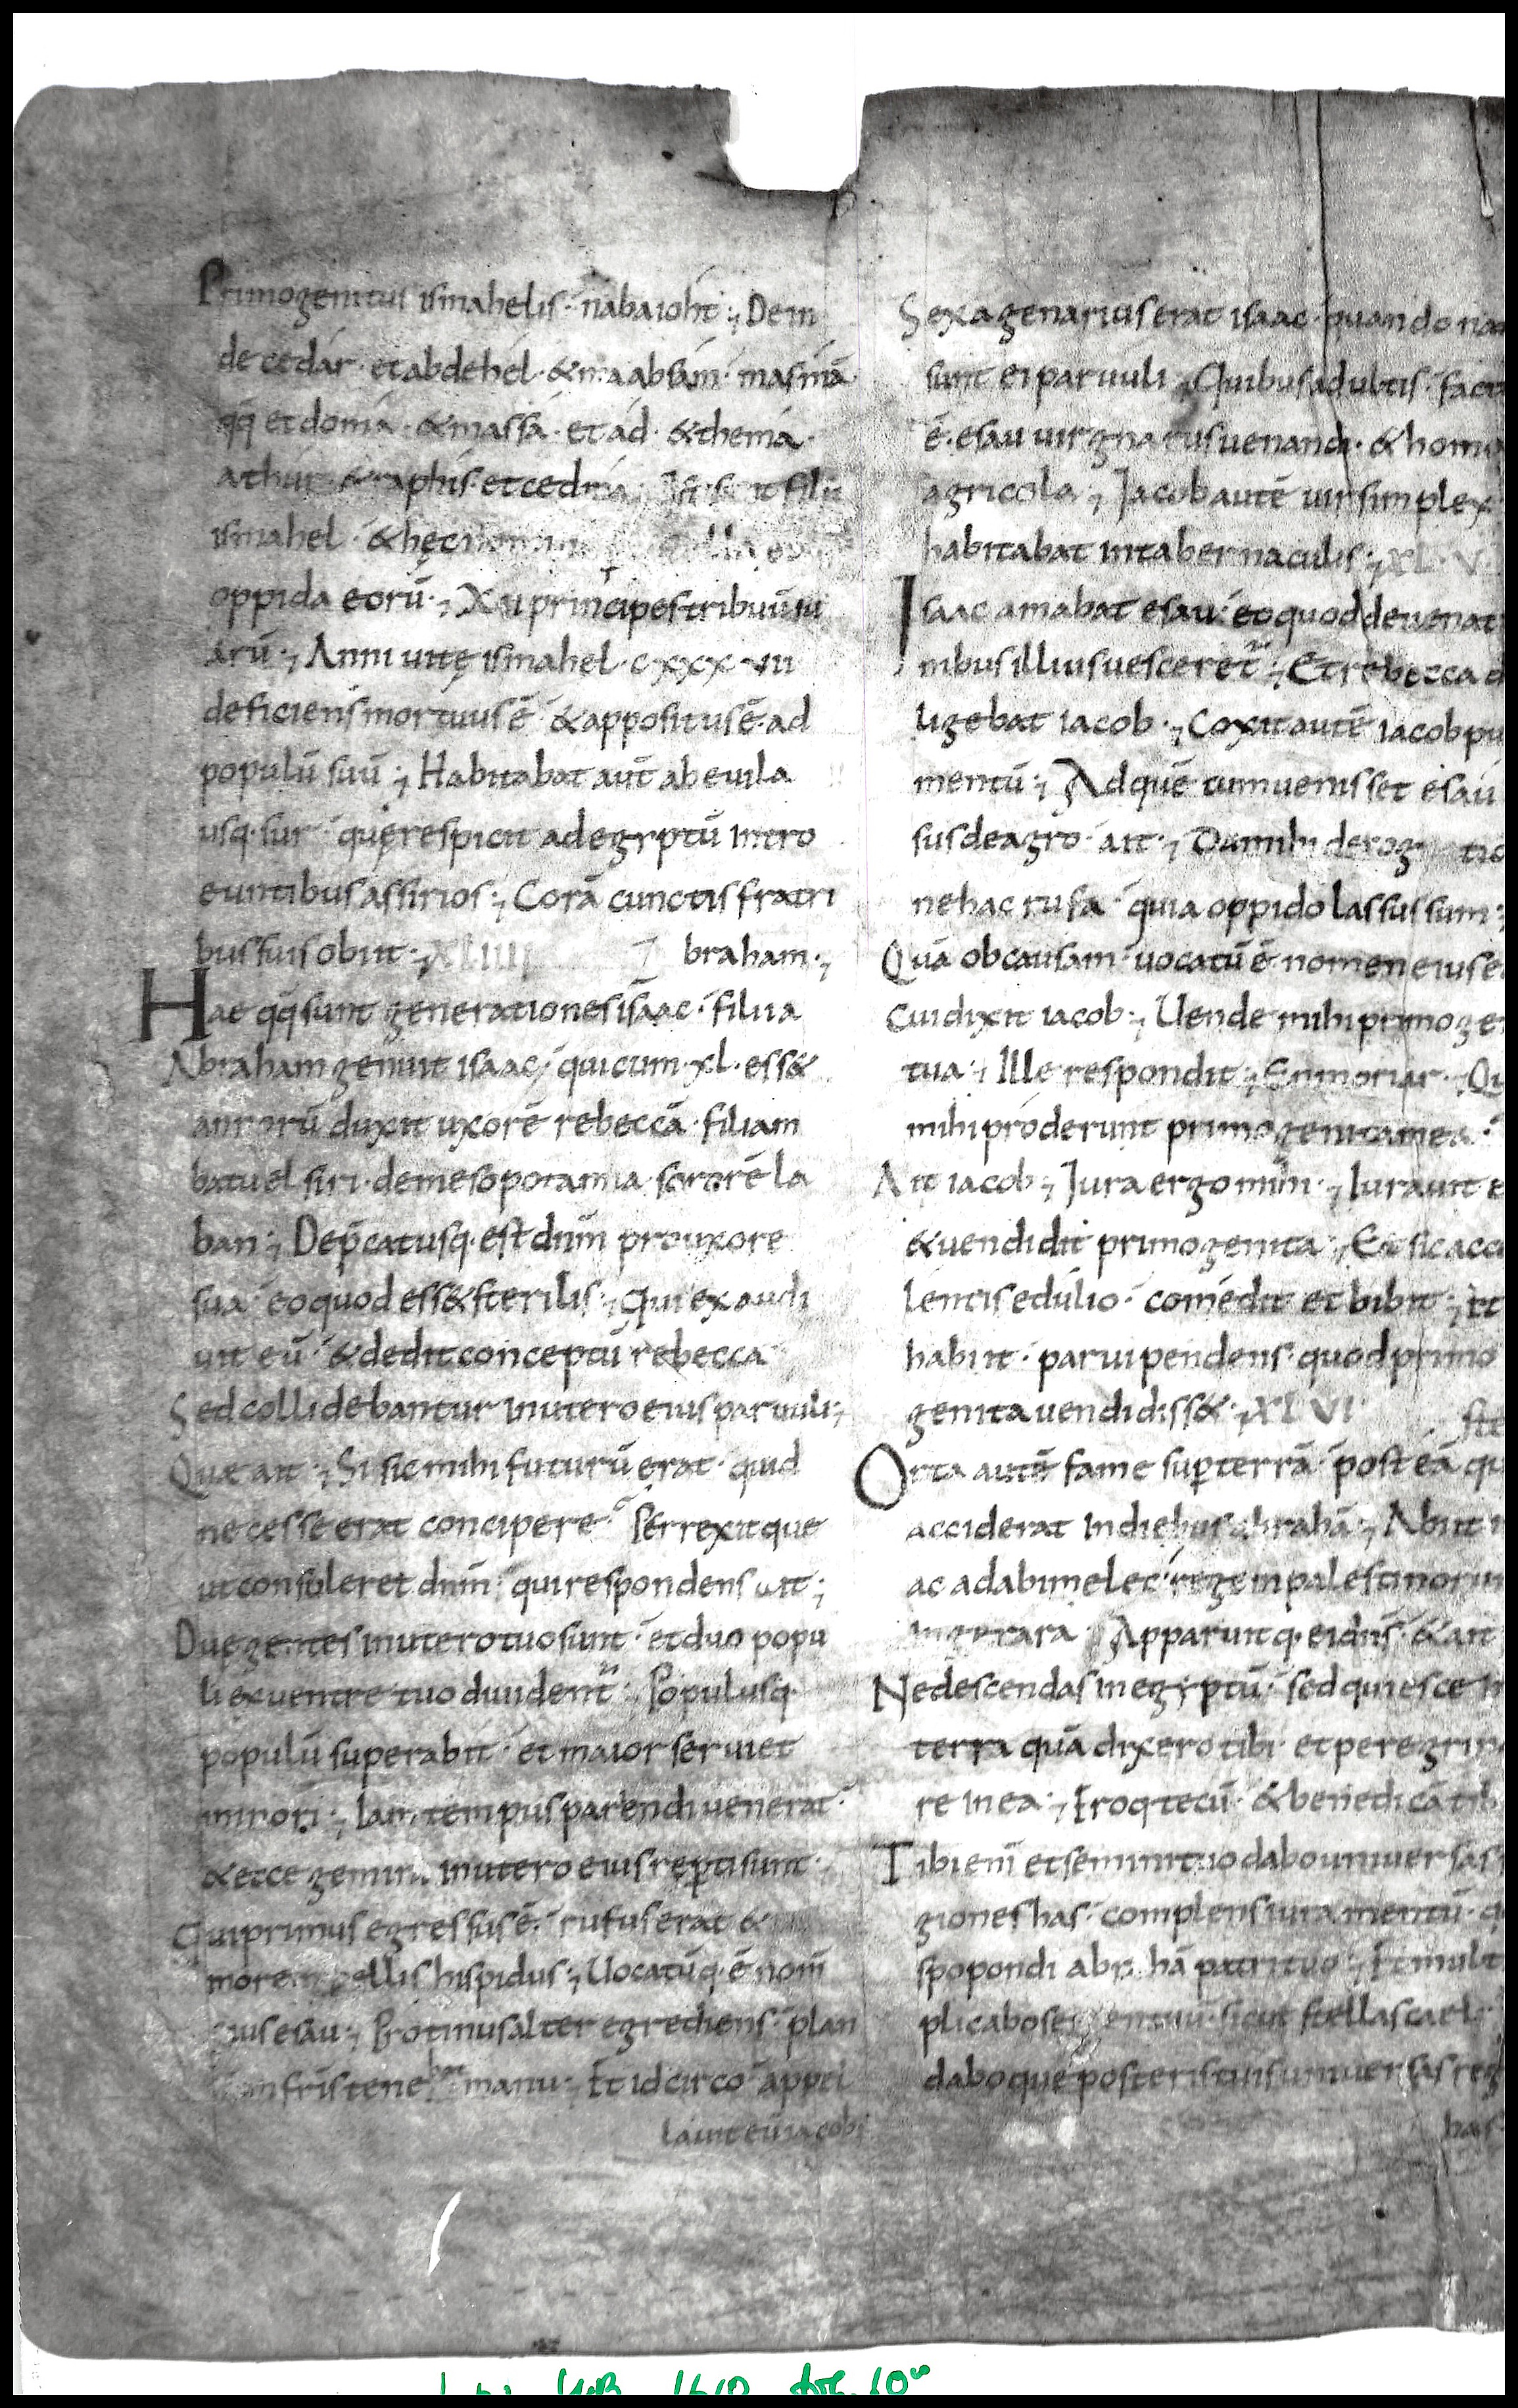 Primogenitus ismahelis· nabaioht·; Dein
de cedár· et abdehél· & mabsám· masmā
qq̇ et domá· & massá· et ád· & themá·
athur· & raphis· et cedmá· Isti sunt filii
ismahel· & hęc nomina
oppida eorū·; XII principes tribuū su
arū·; Anni uitę ismahel· c·xxx·vii
deficiens mortuus ē· & appositus ē· ad
populū suū·; Habitabat aūt ab euila
usq· sur· quę respicit ad egyptū intro
euntibus assirios·; Corā cunctis fratri
bus suis obiit·; XLIIII braham·;
Hae qq̇ sunt generationes isaac· filii a
Abraham genuit isaac; qui cum· xl· ess&
annorū duxit uxorē rebeccā· filiam
batuel siri· de mesopotamia· sororē la
ban·; Dep̄catusq· est dnm̄ pro uxore
sua· eo quod ess& sterilis·; Qui exaudi
uit eū· & dedit conceptū rebecca
Sed collidebantur in utero eius paruuli·;
Quae ait·; Si sic mihi futurū erat· quid
necesse erat concipere? Perrexitque
ut consuleret dnm̄· qui respondens ait·;
Duę gentes in utero tuo sunt· et duo popu
li ex uentre tuo diuident᷑· Populusq·
populū superabit· et maior seruiet
minori·; Iam tempus pariendi uenerat·
& ecce gemini in utero eius rep̱ti sunt·
Qui primus egressus ē· rufus erat &
morem pellis hispidus·; Uocatūq· ē nom̄
eius esau·; Protinus alter egrediens· plan
fr̄is tenebat manu·; Et idcirco appel
lauit eū iacob·;
Sexagenarius erat isaac· quando na
sunt ei paruuli·; Quibus adultis· fact
ē· esau uir gnarus uenandi· & homo
agricola·; Iacob autē uir simplex
habitabat in tabernaculis·; XL·V·
Isaac amabat esau· eo quod de uenat
nibus illius uesceret᷑·; Et rebecca d
ligebat iacob·; Coxit autē iacob pu
mentū·; Ad quē cum uenisset esau
sus de agro· ait·; Da mihi de coc tio
ne hac rufa· quia oppido lassus sum·;
Quā ob causam· uocatū ē nomen eius e
Cui dixit iacob·; Uende mihi primoge
tua·; Ille respondit·; En morior·; Qu
mihi proderunt primogenita mea·
Ait iacob·; Iura ergo mihi·; Iurauit e
& uendidit primogenita·; Et sic acce
lentis edulio· comedit et bibit·; et
habiit· paruipendens· quod primo
genita uendidiss&·; XLVI
Orta autē fame sup̱ terrā· post eā qu
acciderat in diebus abrahā·; Abiit i
ac ad abimelec· regem palestinorum
in gerara· Apparuitq· ei dns̄· & ait
Ne descendas in egyptū· sed quiesce in
terra quā dixero tibi· et peregrin
re in ea·; Eroq tecū· & benedicā tib
Tibi eni̅ et semini tuo dabo uniuersas
giones has· complens iuramentū· q
spopondi abrahā patri tuo·; Et mult
plicabo semen tuū· sicut stellas caeli·
daboque posteris tuis uniuersas reg
has·